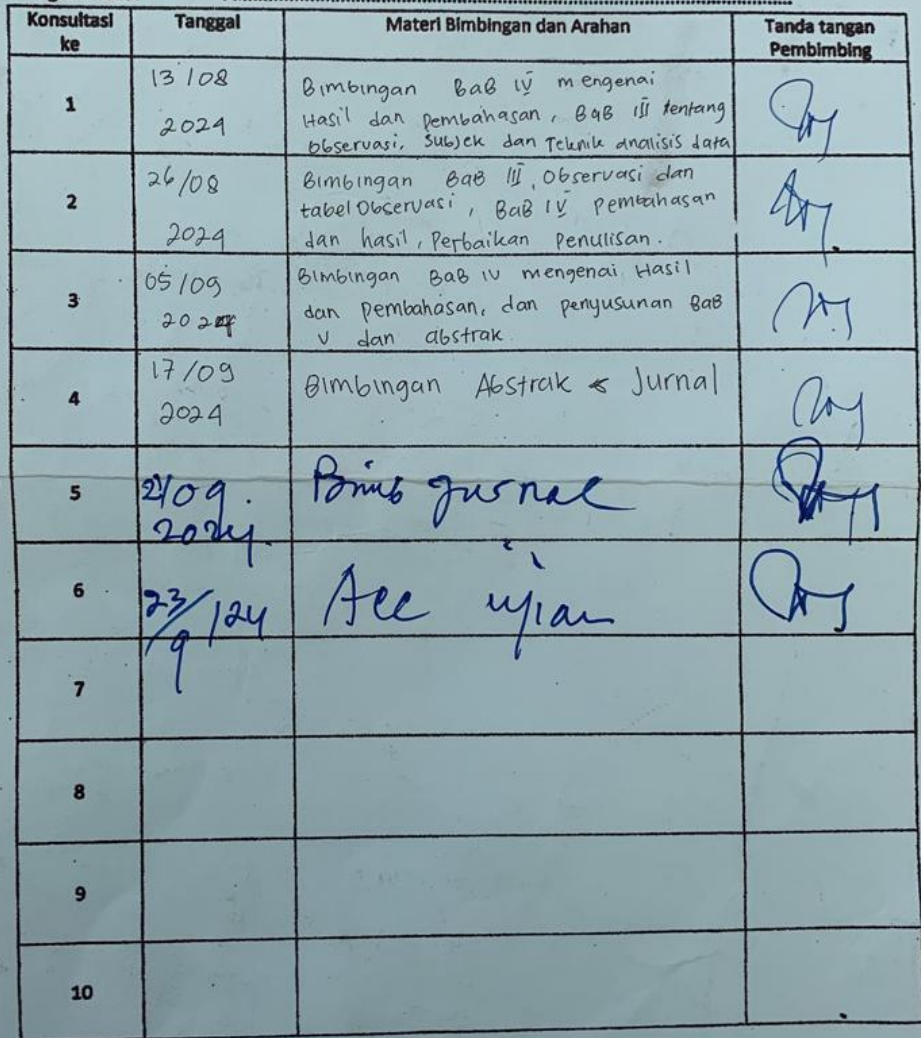 Konsultasi ke
Tanggal
Materi Bimbingan dan Arahan
Tanda tangan Pembimbing
1
13/08
2024
Bimbingan BaB IV mengenai
Hasil dan Pembahasan, BaB III tentang
observasi, Subjek dan Teknik analisis data
2
26/08
2024
Bimbingan BaB III, Observasi dan
tabel Observasi, BaB IV pembahasan
dan hasil, Perbaikan Penulisan.
3
05/09
2024
Bimbingan BaB IV mengenai Hasil
dan pembahasan, dan penyusunan BaB
V dan abstrak
4
17/09
2024
Bimbingan Abstrak & Jurnal
5
2024.
Bimb Jurnal
6
23/9/24
Acc ujian
7
8
9
10